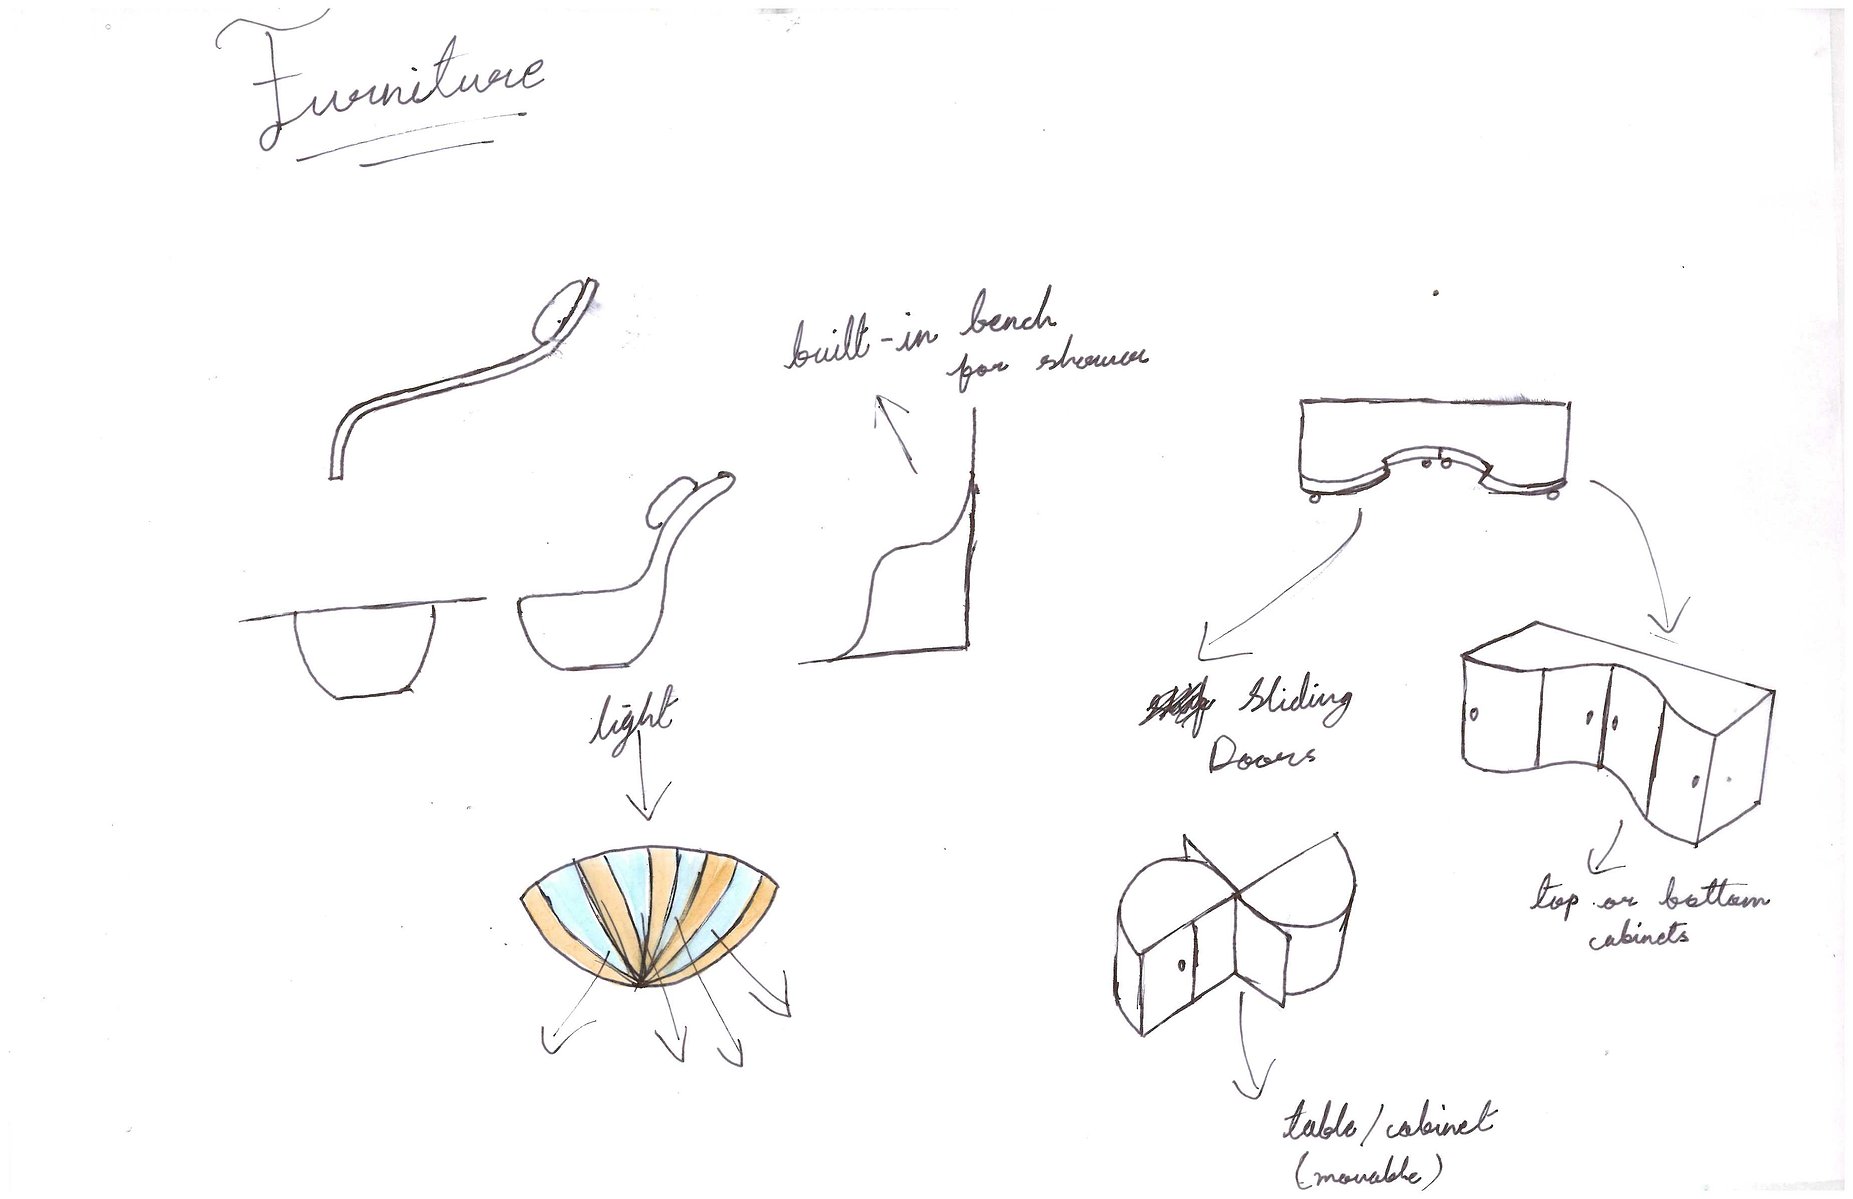 Furniture
built-in bench
for shower
light
Sliding
Doors
top or bottom
cabinets
table/cabinet
(movable)